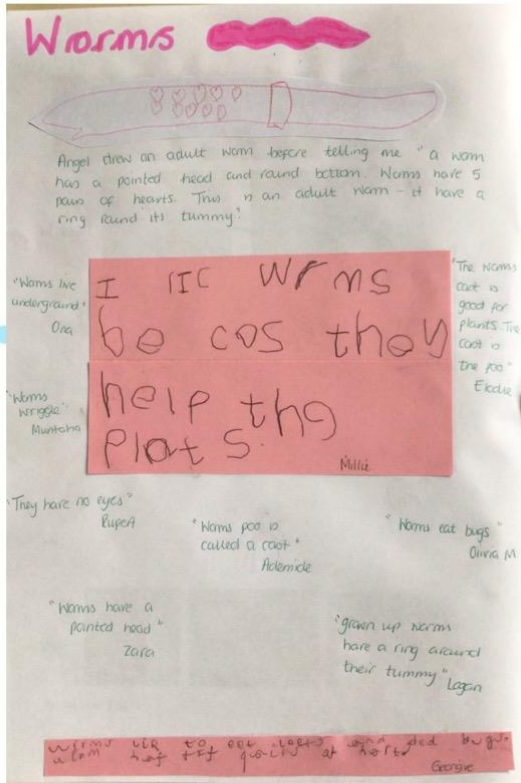 Worms
Angel drew an adult worm before telling me "a worm
has a pointed head and round bottom. Worms have 5
pairs of hearts. This is an adult worm - it have a
ring round its tummy."
"Worms live
underground"
Ona
I lIC wrms
be cos they
help the
plat s.
Millie
"The worms
cast is
good for
plants. The
cast is
the poo."
Elodie
"Worms
wriggle"
Muntaha
"They have no eyes"
Rupert
"Worms poo is
called a cast"
Ademide
"Worms eat bugs"
Olivia M
"Worms have a
pointed head"
Zara
"grown up worms
have a ring around
their tummy"
Logan
to eat and ded bugs.
Georgie